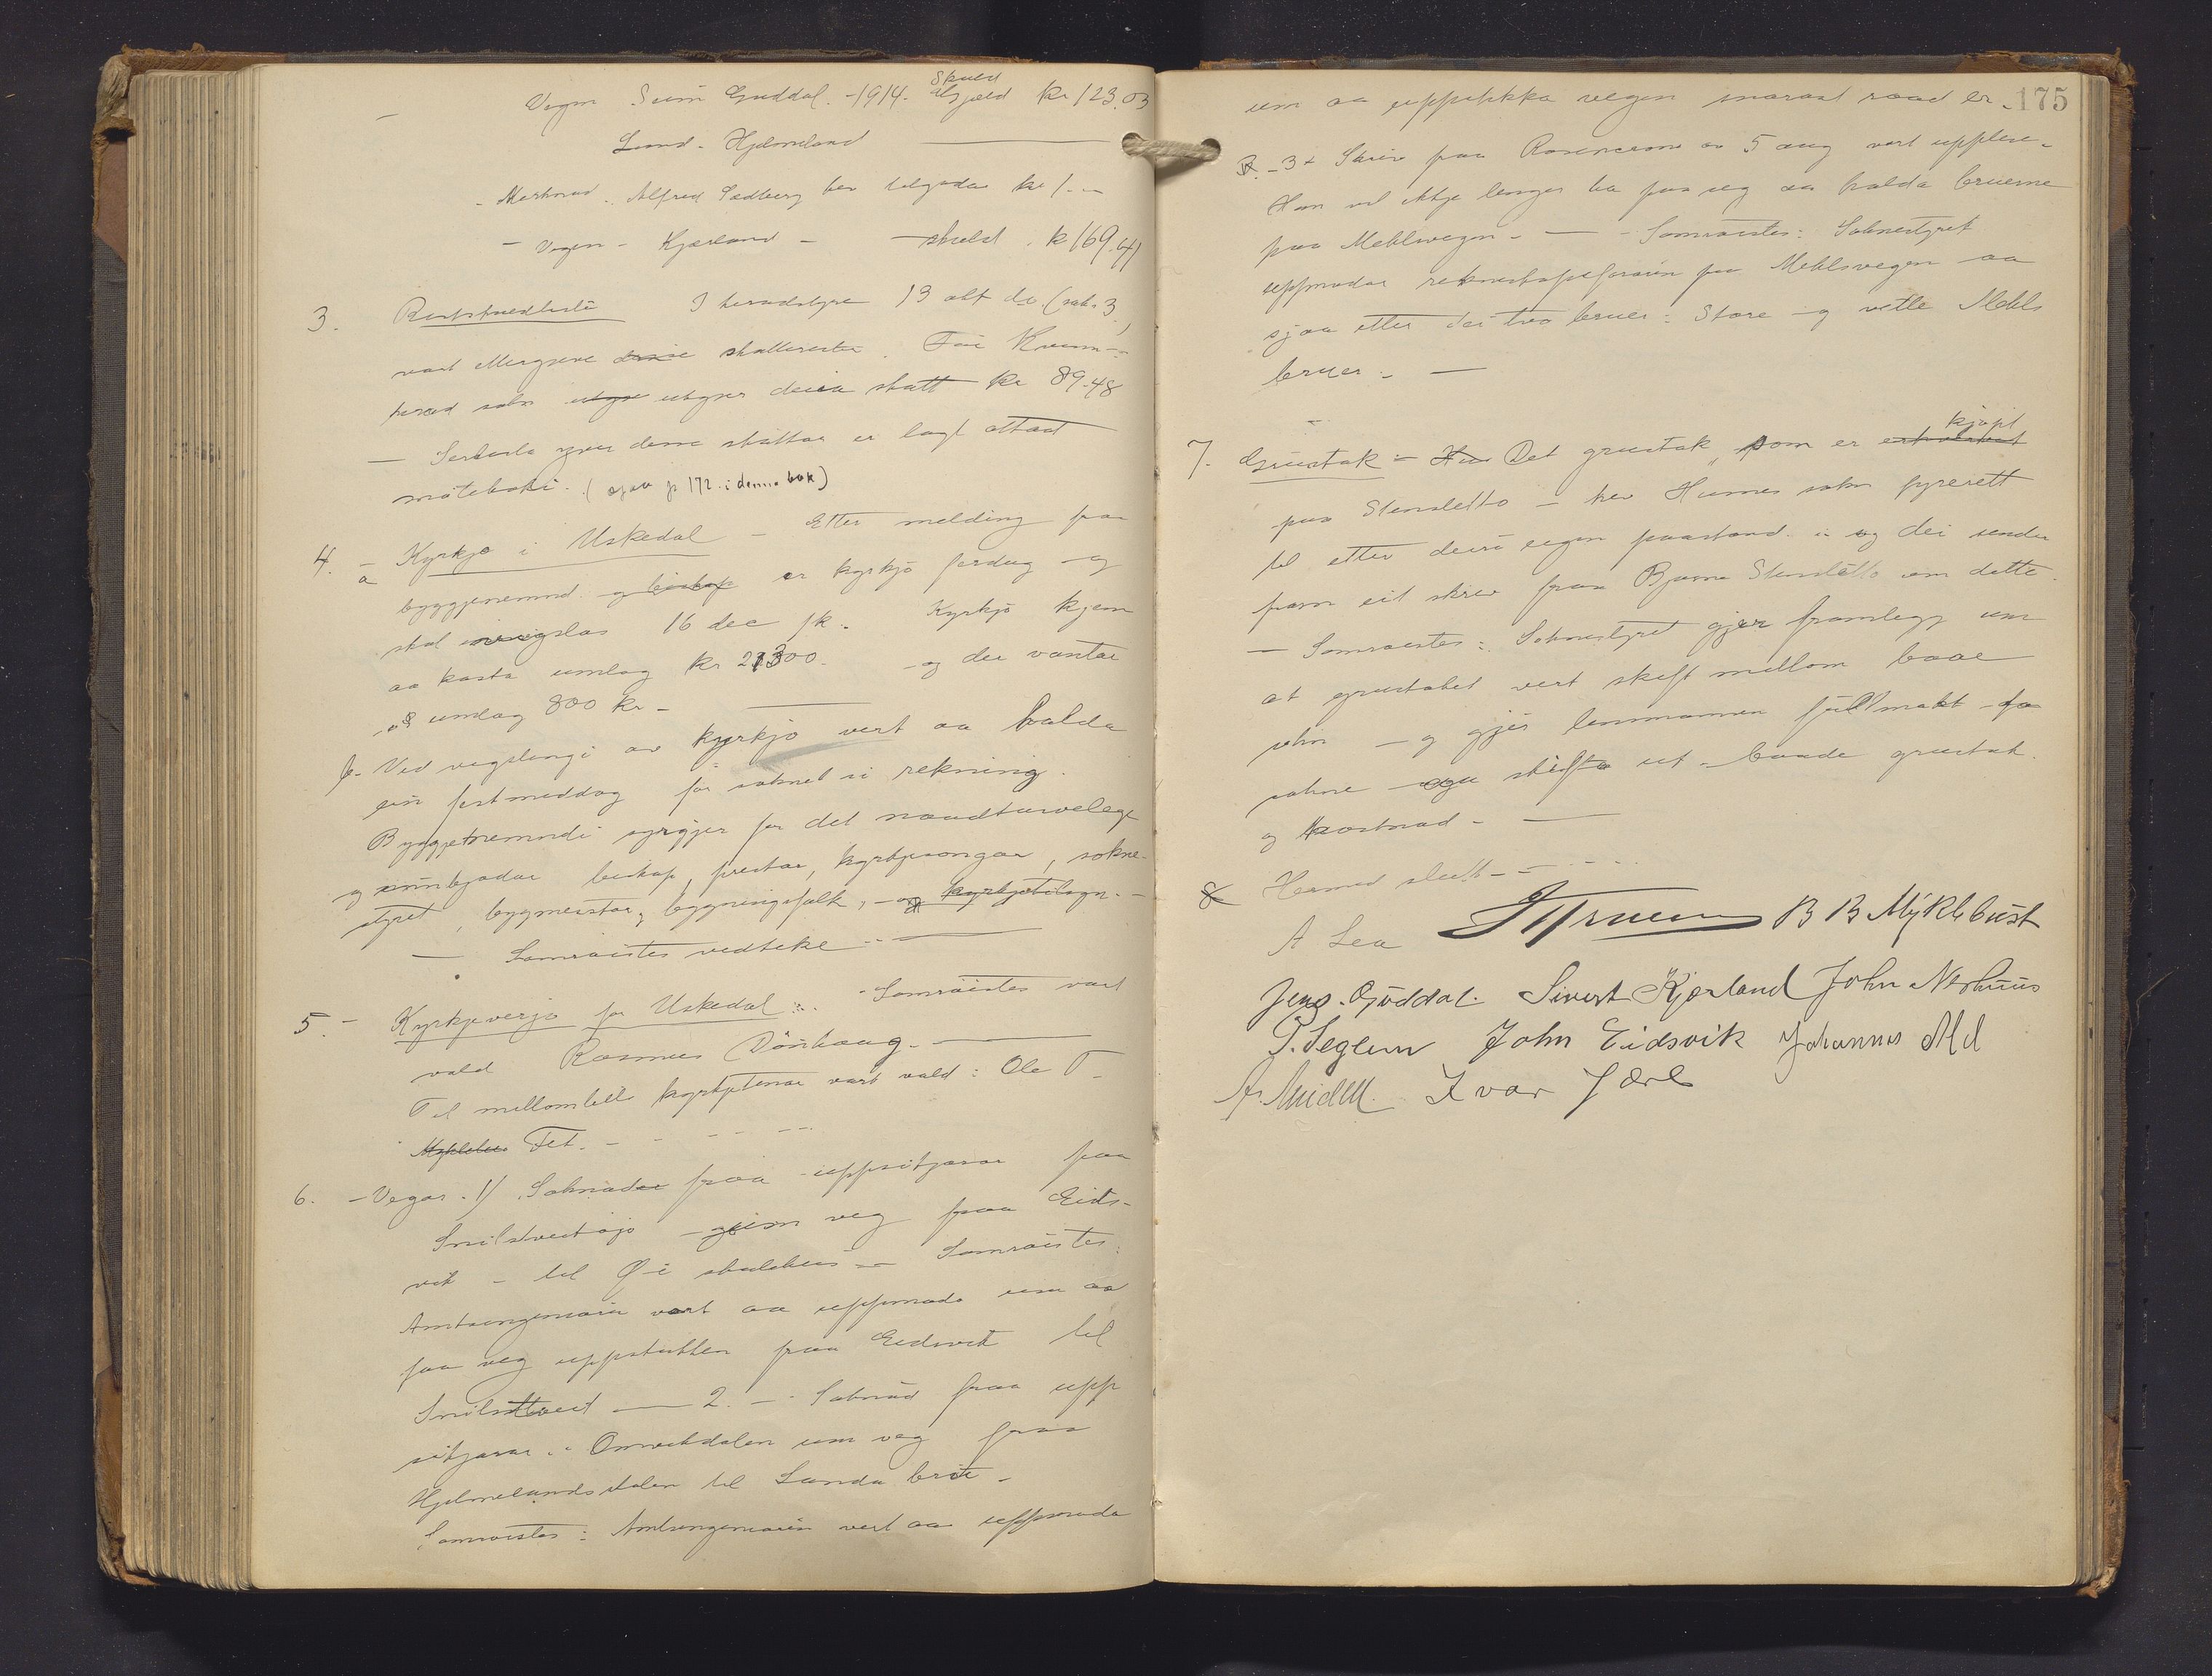 Vegen Seim Guddal. - 1914. Skuld kr 123.03
Lund - Hjelmeland
- Merknad. Alfred Sædberg hev tilgoda kr 1.-
- Vegen - Kjærland - skuld. k 169.41
3. Restskuedlista I heradstyre 13 okt d.a. (sak 3)
vart ettergjeve denne skatterester. For Kvinn-
herad sokn utgjer utgjer deira skatt kr 89.48
- Serlista yver desse skattar er lagt attaat
møteboki. (sjaa p 172. i denne bok)
4. a Kyrkje i Uskedal - Etter melding fraa
byggjenemnd og biskop er kyrkjo ferdug og
skal vigslas 16 dec f.k. Kyrkjo kjem
aa kosta umlag kr 21300. - og der vantar
umlag 800 kr -
b. Ved vigslingi av kyrkjo vert aa halda
ein festmiddag for soknet si rekning.
Byggjenemndi syrgjer for det naudturvelege
og innbjodar biskop, prestar, kyrkjesongar, sokne-
styret, bygmeistar, bygningsfolk, - og kyrkjetilsyn. -
- Samrøistes vedteke -
5. - Kyrkjeverja for Uskedal: - Samrøistes vart
vald Rasmus Dønhaug. -
Til mellombils kyrkjetenar vart vald: Ole T.
Myklebus Fet. -
6. - Vegar. 1/ Soknader fraa uppsitjarar paa
Snilstveitøjo - um veg fraa Eids-
vik - til Ø-i skulehus - Samrøistes:
Amtsingeniøren vert aa uppmoda um aa
faa veg uppstukken fraa Eidsvik til
Snilstveit - 2. - Soknad fraa upp
sitjarar i Omvikdalen um veg fraa
Hjelmelandsdalen til Landa bru -
Samrøistes: Amtsingeniøren vert aa uppmoda
175
um aa uppstikka vegen snarast raad er.
- 3. Skriv fraa Rosencrone av 5 aug vart upplese.
Han vil ikkje lenger ta paa seg aa halda bruerne
paa Mehlsvegen. - Samrøistes: Soknestyret
uppmodar rekneskapsføraren for Mehlsvegen aa
sjaa etter dei tvo bruer: Store og vetle Mehls
bruer. -
7. Grustak - Det grustak, som er kjøpt
paa Stensletto - hev Husnes sokn fyrerett
til etter deira eigen paastand. - og dei sender
fram eit skriv fraa Bjarne Stensletto um dette.
- Samrøistes: Soknestyret gjer framlegg um
at grustaket vert skift mellom baae
sokn - og gjer lensmannen fullmakt
sokne skifta ut baade grustak
og kostnad. -
8 Hermed slutt - -
A Lea B B Myklebust
Jens Guddal. Sivert Kjærland John Neshuus
P. Seglem John Eidsvik Johannes Mel
A. Midttl. Ivar Jærl